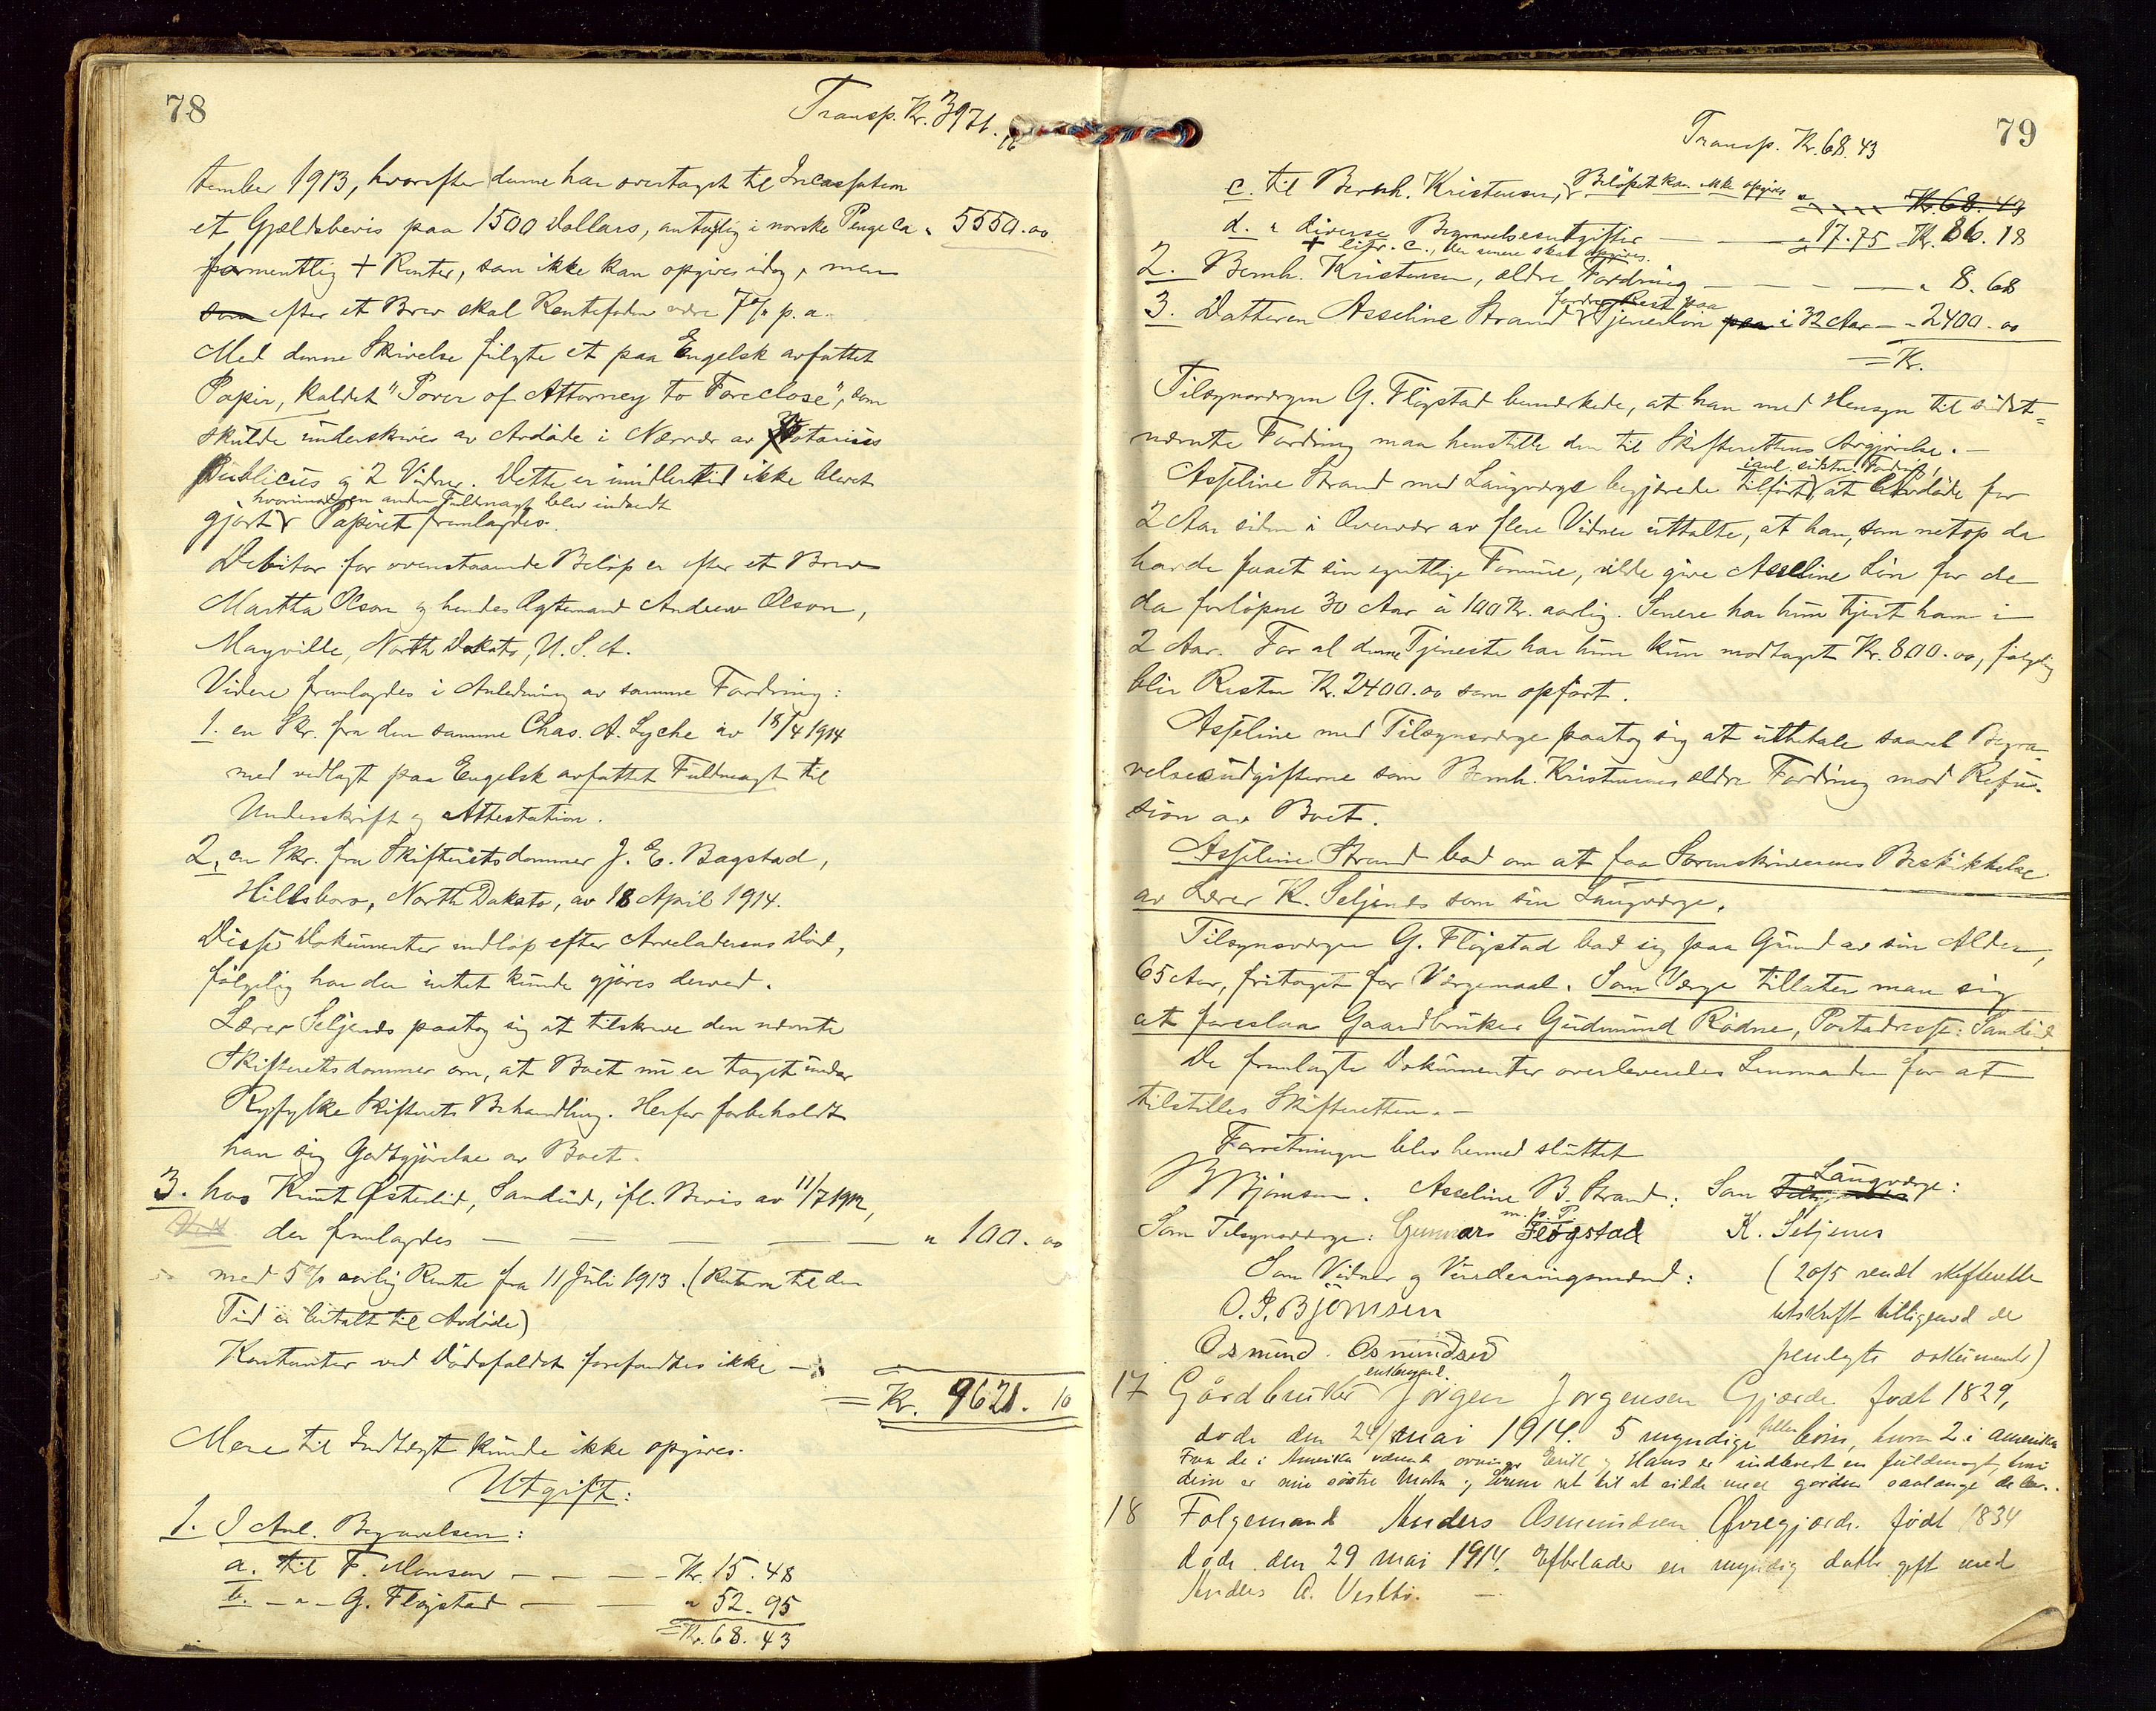 78
Transp. Kr. 3971.10
tember 1913, hvorefter denne har overtaget til Incassation
et Gjældsbevis paa 1500 Dollars, antagelig i norske Penge ca " 5550.00
formentlig + Renter, som ikke kan opgives idag, men
som efter et Brev skal Rentefoden være 7% p. a.
Med denne Skrivelse fulgte et paa Engelsk avfattet
Papir, kaldet "Power of Attorney to Foreclose", som
skulde underskrives av Avdøde i Nærvær av Notarius
Publicus og 2 Vidner. Dette er imidlertid ikke blevet
hvorimod en anden Fuldmagt blev indsendt
gjort. Papiret fremlagdes.
Debitor for ovenstaaende Beløp er efter et Brev
Martha Olson og hendes Ægtemand Andrew Olson,
Mayville, North Dakota, U. S. A.
Videre fremlagdes i Anledning av samme Fordring:
1. en Skr. fra den samme Chas. A. Lyche av 18/4 1914
med vedlagt paa Engelsk avfattet Fuldmagt til
Underskrift og Attestation.
2. en Skr. fra Skifteretsdommer J. E. Bagstad,
Hillsboro, North Dakota, av 18 April 1914.
Disse Dokumenter indløp efter Arveladerens Død,
følgelig har der intet kunde gjøres derved.
Lærer Seljenes paatog sig at tilskrive den nævnte
Skifteretsdommer om, at Boet nu er taget under
Ryfylke Skifterets Behandling. Herfor forbeholdt
han sig Godtgjørelse av Boet.
3. hos Knut Østerlid, Sandeid, ifl. Bevis av 11/7 1912,
der fremlagdes — — — — " 100.00
med 5% aarlig Rente fra 11 Juli 1913. (Renten til den
Tid er betalt til Avdøde)
Kontanter ved Dødsfaldet forefandtes ikke —
= Kr. 9621.10
Mere til Indtægt kunde ikke opgives.
Utgift:
1. I Anl. Begravelsen:
a. til F. Monsen — — — Kr. 15.48
b. — " — G. Fløgstad — — " 52.95
= Kr. 68.43
79
Transp. Kr. 68.43
c. til Bernh. Kristensen, Beløpet kan ikke opgives " Kr. 68.43
d. " diverse Begravelsesutgifter — — " 17.75 Kr. 86.18
+ litr. c., der senere skal opgives.
2. Bernh. Kristensen, ældre Fordring — — — " 8.68
fordrer Rest paa
3. Datteren Asseline Strand Tjenerløn paa i 32 Aar — " 2400.00
= Kr.
Tilsynsværgen G. Fløgstad bemærkede, at han med Hensyn til sidst-
nævnte Fordring maa henstille den til Skifterettens Avgjørelse. —
ianl. sidstn. Fordr.,
Asseline Strand med Laugværge begjærede tilført at Avdøde for
2 Aar siden i Overvær av flere Vidner uttalte, at han, som netop da
havde faaet sin egentlige Formue, vilde give Asseline Løn for de
da forløpne 30 Aar à 100 Kr. aarlig. Senere har hun tjent ham i
2 Aar. For al denne Tjeneste har hun kun modtaget Kr. 800.00, følgelig
blir Resten Kr. 2400.00 som opført.
Asseline med Tilsynsværge paatog sig at utbetale saavel Begra-
velsesudgifterne som Bernh. Kristensens ældre Fordring mod Refu-
sion av Boet.
Asseline Strand bad om at faa Sorenskriverens Beskikkelse
av Lærer K. Seljenes som sin Laugværge.
Tilsynsværgen G. Fløgstad bad sig paa Grund av sin Alder,
65 Aar, fritaget for Værgemaal. Som Værge tillater man sig
at foreslaa Gaardbruker Gudmund Rødne, Postadresse: Sandeid
De fremlagte Dokumenter overleveredes Lensmanden for at
tilstilles Skifteretten. —
Forretningen blev hermed sluttet
B Bjørnsen. Asseline B. Strand: Som Laugværge:
m. p. P.
Som Tilsynsværge: Gunnars Fløgstad K. Seljenes
Som Vidner og Vurderingsmænd: (20/5 sendt skifteretten
O. P. Bjørnsen utskrift tilligemed de
Osmund Osmundsen fremlagte dokumenter)
enkemand.
17 Gårdbruker Jørgen Jørgensen Gjærde født 1829,
døde den 24 mai 1914. 5 myndige børn, hvorav 2 i Amerika
Fra de i Amerika værende arvinger Erik og Hans er indleveret en fuldmagt, hvori
deres søstre Marta og ret til at sidde med gården saalange de lever.
18 Følgemand Anders Osmundsen Øvregjærde født 1834
døde den 29 mai 1914. Efterlader en myndig datter gift med
Anders A. Vestbø. —